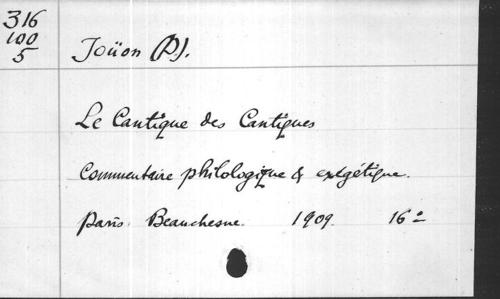 316
100
5
Joüon (P).
Le Cantique des Cantiques
Commentaire philologique & exégétique.
Paris. Beauchesne. 1909. 16º